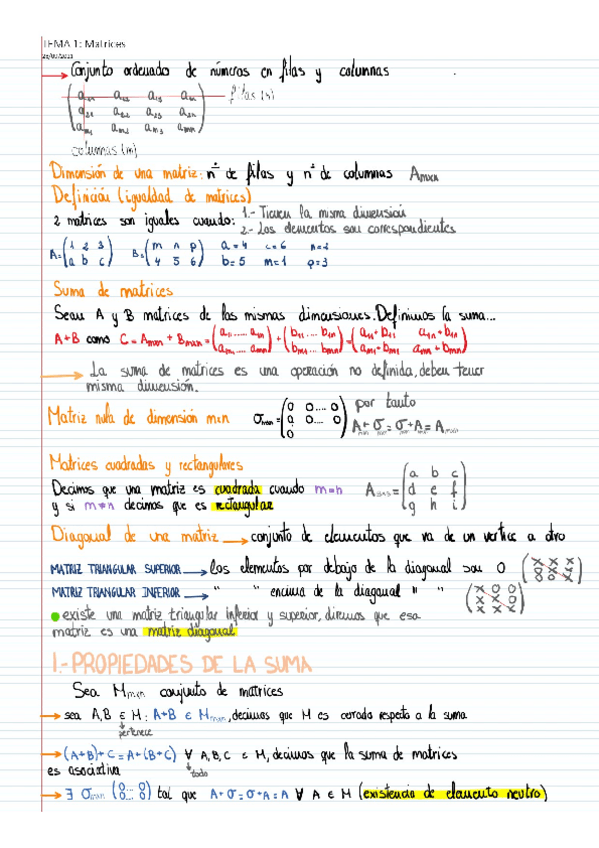 TEMA 1: Matrices
Conjunto ordenado de números en filas y columnas
(a₁₁ a₁₂ a₁₃ a₁ₙ) filas (n)
a₂₁ a₂₂ a₂₃ a₂ₙ
aₘ₁ aₘ₂ aₘ₃ aₘₙ
columnas (m)
Dimensión de una matriz: nº de filas y nº de columnas Aₘₓₙ
Definición (igualdad de matrices)
2 matrices son iguales cuando: 1.- Tienen la misma dimensión
2.- Los elementos son correspondientes
A=(1 2 3) B=(m n p) a=4 c=6 n=2
(a b c) (4 5 6) b=5 m=1 p=3
Suma de matrices
Sean A y B matrices de las mismas dimensiones. Definimos la suma...
A+B como C = Aₘₓₙ + Bₘₓₙ = (a₁₁ .... a₁ₙ) + (b₁₁ .... b₁ₙ) = (a₁₁+b₁₁ a₁ₙ+b₁ₙ)
(aₘ₁ .... aₘₙ) (bₘ₁ .... bₘₙ) (aₘ₁+bₘ₁ aₘₙ+bₘₙ)
La suma de matrices es una operación no definida, deben tener
misma dimensión.
Matriz nula de dimensión mxn σₘₓₙ = (0 0 .... 0) por tanto
0 0 .... 0 A+σ=σ+A=A
0
Matrices cuadradas y rectangulares
Decimos que una matriz es cuadrada cuando m=n A₃ₓ₃ = (a b c)
y si m≠n decimos que es rectangular (d e f)
(g h i)
Diagonal de una matriz → conjunto de elementos que va de un vertice a otro
MATRIZ TRIANGULAR SUPERIOR → los elementos por debajo de la diagonal son 0 (x x x)
MATRIZ TRIANGULAR INFERIOR → " " encima de la diagonal " " (x 0 0)
existe una matriz triangular inferior y superior, diremos que esa
matriz es una matriz diagonal
1.- PROPIEDADES DE LA SUMA
Sea Mₘₓₙ conjunto de matrices
→ sea A,B ∈ M: A+B ∈ Mₘₓₙ, decimos que M es cerrada respecto a la suma
pertenece
→ (A+B)+C = A+(B+C) ∀ A,B,C ∈ M, decimos que la suma de matrices
es asociativa todo
→ ∃ σₘₓₙ (0 ... 0) tal que A+σ=σ+A=A ∀ A ∈ M (existencia de elemento neutro)